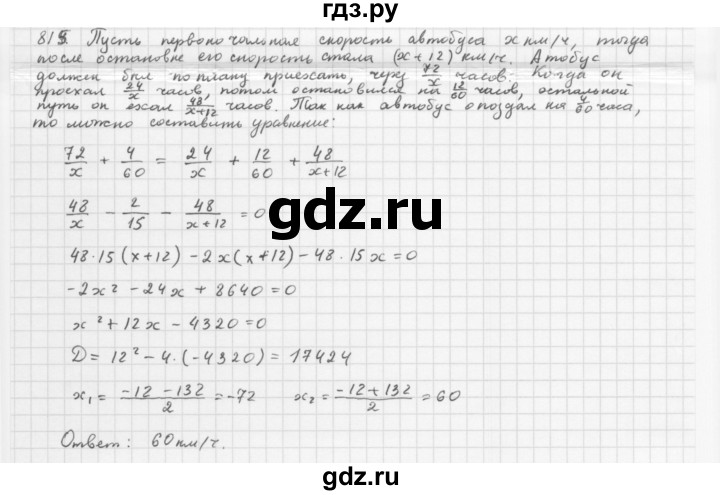 гдз.ру
815. Пусть первоначальная скорость автобуса x км/ч, тогда
после остановке его скорость стала (x+12) км/ч. Атобус
должен был по плану приезжать, через 72/x часов. Когда он
проехал 24/x часов, потом остановился на 12/60 часов, остальной
путь он ехал 48/(x+12) часов. Так как автобус опоздал на 4/60 часа,
то можно составить уравнение:
72/x + 4/60 = 24/x + 12/60 + 48/(x+12)
48/x - 2/15 - 48/(x+12) = 0
gdz.ru
48·15(x+12) - 2x(x+12) - 48·15x = 0
-2x² - 24x + 8640 = 0
x² + 12x - 4320 = 0
D = 12² - 4·(-4320) = 17424
x₁ = (-12-132)/2 = -72 x₂ = (-12+132)/2 = 60
Ответ: 60 км/ч.
gdz.ru